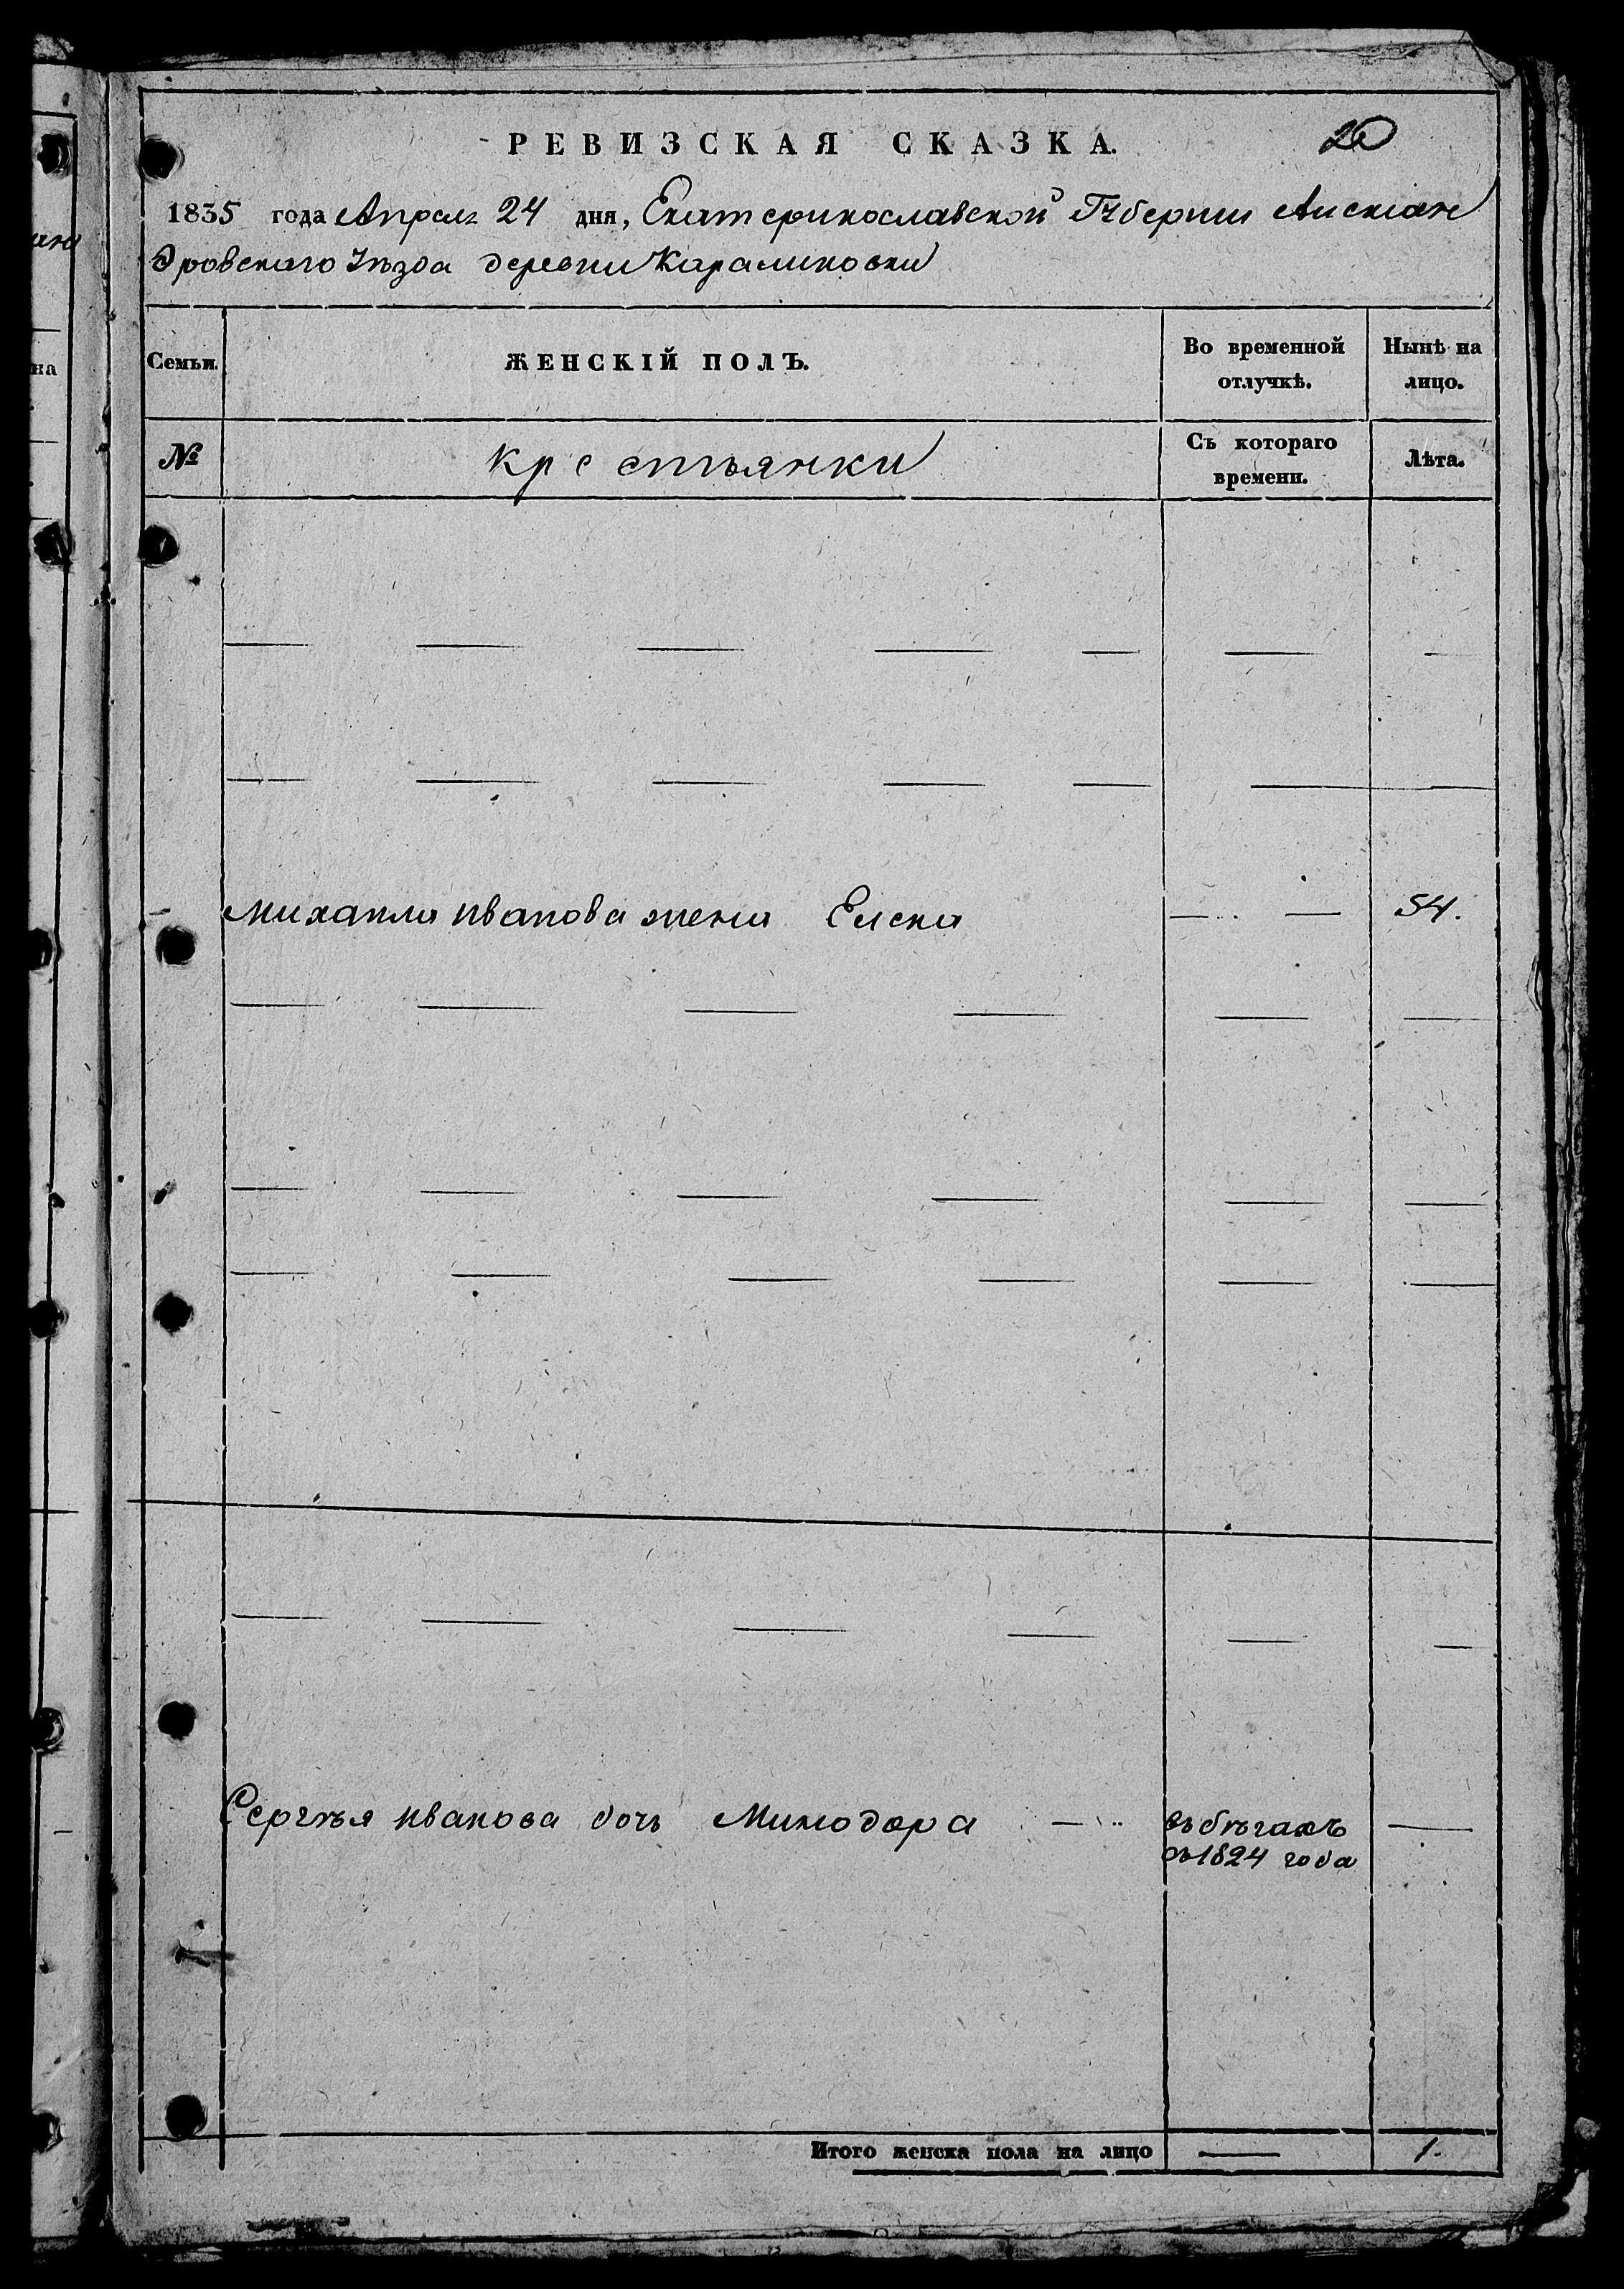 РЕВИЗСКАЯ СКАЗКА. 20
1835 года Апреля 24 дня, Екатеринославской Губернии Алексан
дровского Уезда деревни Каралиновки
Семьи. ЖЕНСКІЙ ПОЛЪ. Во временной отлучкѣ. Нынѣ на лицо.
№ Крестьянки Съ котораго времени. Лѣта.
Михаила Иванова жена Елена 54.
Сергѣя Иванова дочь Минодора въ бѣгахъ
съ 1824 года
Итого женска пола на лицо 1.